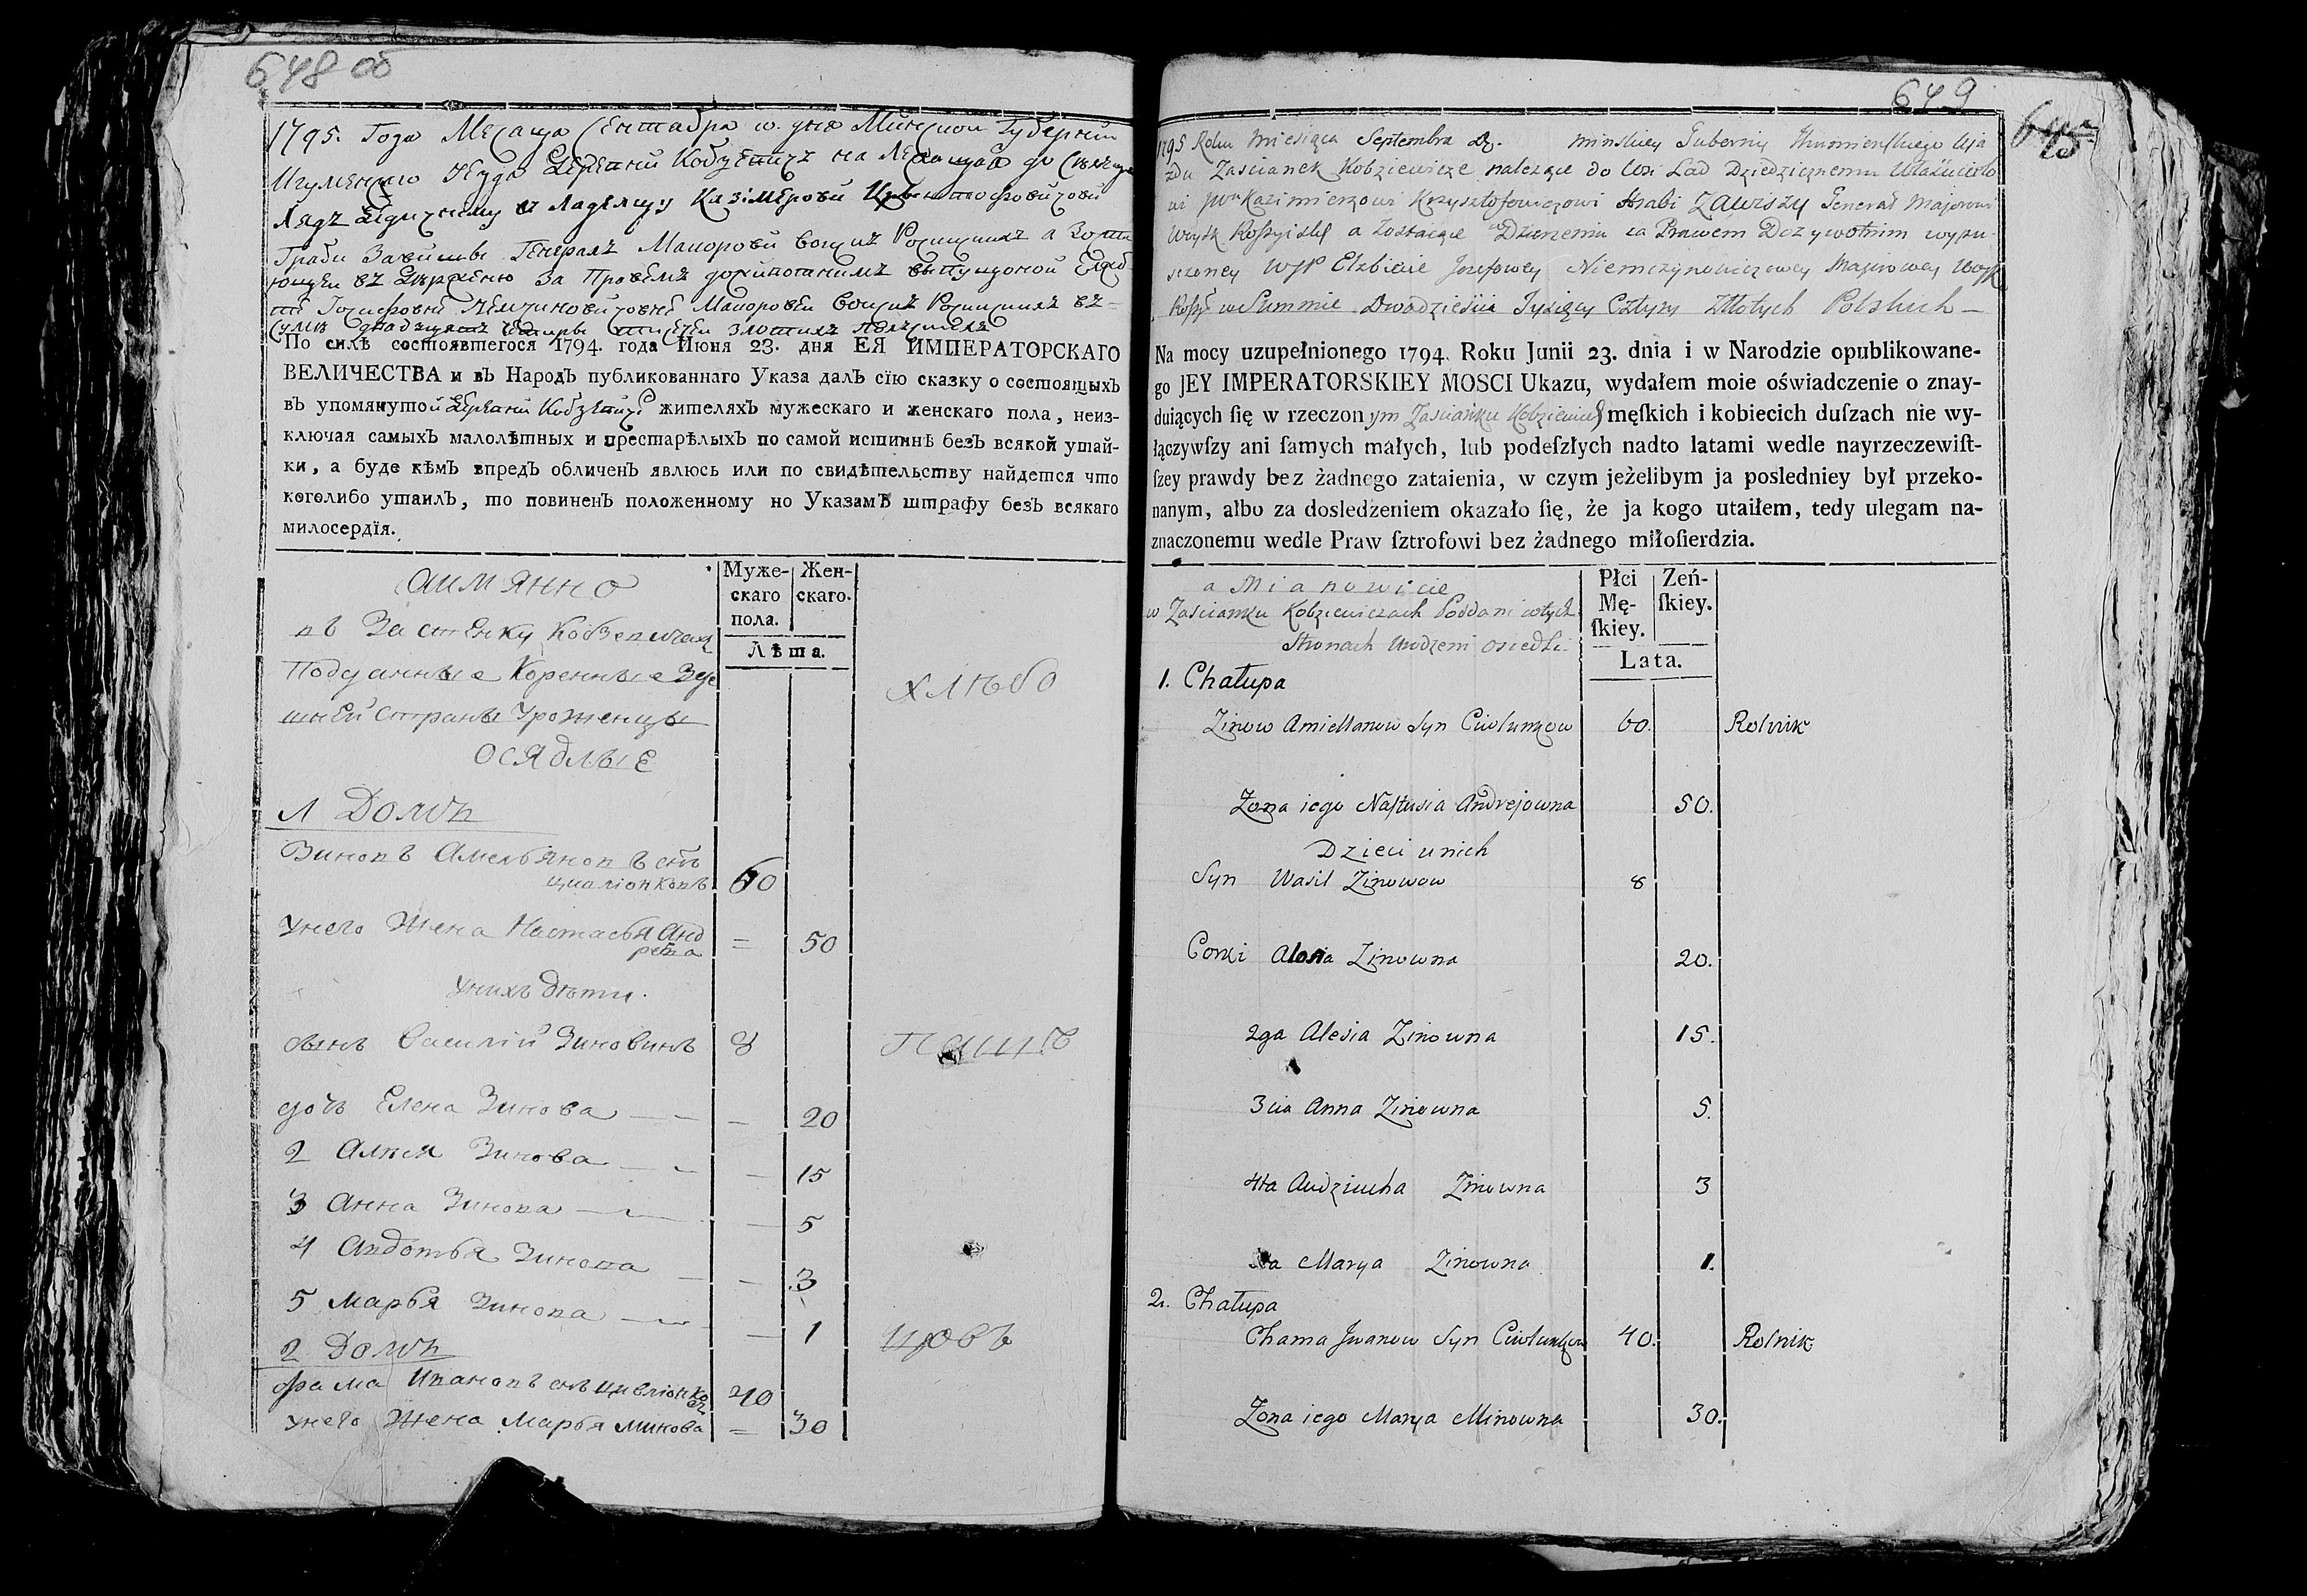 648 об
1795. Года Месяца Сентября 10. дня Минской Губернии
Игуменского Уезда
Казимерови
Грабi Завишы Генералъ Маиорови Воискъ Росиискихъ а
за Правемъ
Маиоровеи Воискъ Росиискихъ въ
По силѣ состоявшегося 1794. года Июня 23. дня ЕЯ ИМПЕРАТОРСКАГО
ВЕЛИЧЕСТВА и въ Народъ публикованнаго Указа далъ сїю сказку о состоящыхъ
въ упомянутой жителяхъ мужескаго и женскаго пола, неиз-
ключая самыхъ малолѣтныхъ и престарѣлыхъ по самой истиннѣ безъ всякой утай-
ки, а буде кѣмъ впредъ обличенъ явлюсь или по свидѣтельству найдется что
коголибо утаилъ, то повиненъ положенному но Указамъ штрафу безъ всякаго
милосердїя.
аимянно
въ Застенку Кобзевичахъ
Подданные Коренные Зде
шней Страны Уроженцы
осядлые
Муже-
скаго
пола.
Жен-
скаго.
Лѣта.
хлѣбо
1 Домъ
Зиновъ Амельяновъ снъ
цивліонковъ 60
Унего Жена Настасья Анд
реева = 50
Унихъ дѣти.
сынъ Василій Зиновинъ 8
пашцѣ
дочь Елена Зинова — 20
2 Алися Зинова — 15
3 Анна Зинова — 5
4 Авдотья Зинова — 3
5 Марья Зинова — 1
2 Домъ
цовъ
Фама Ивановъ снъ цивліонко
въ 40
Унего Жена Марья Минова = 30
649
645
1795 Roku Miesiąca Septembra D. Minskiey Gubernij Ihumienskiego Uja
zdu Zascianek Kobziewicze należące do Wsi Lad Dziedzicznemu Włascicielo
wi JWu Kazimierzowi Krzysztofowiczowi Hrabi Zawiszy Generał Majorowi
Woysk Rossyiskich a Zostaiące w Dzierzeniu za Prawem Dożywotnim wypu-
sczoney WJP Elżbiecie Jozefowey Niemczynowiczowey Majorowey Woysk
Rossy: w Summie Dwadzieścia Tysięcy Cztyry Złłotych Polskich —
Na mocy uzupełnionego 1794. Roku Junii 23. dnia i w Narodzie opublikowane-
go JEY IMPERATORSKIEY MOSCI Ukazu, wydałem moie oświadczenie o znay-
duiących ſię w rzeczonym Zascianku Kobziewicz męſkich i kobiecich duſzach nie wy-
łączywſzy ani ſamych małych, lub podeſzłych nadto latami wedle nayrzeczewiſt-
ſzey prawdy bez żadnego zataienia, w czym jeżelibym ja posledniey był przeko-
nanym, albo za dosledzeniem okazało ſię, że ja kogo utaiłem, tedy ulegam na-
znaczonemu wedle Praw ſztrofowi bez żadnego miłoſierdzia.
a Mianowicie
w Zascianku Kobziewiczach Poddani wtych
Stronach Urodzeni osiedli
Płci
Mę-
ſkiey.
Zeń-
ſkiey.
Lata.
1. Chałupa
Zinow Amiellanow Syn Ciwlunkow 60. Rolnik
Zona iego Nastusia Andrejowna 50.
Dzieci unich
Syn Wasil Zinowow 8
Corki Alona Zinowna 20.
2ga Alesia Zinowna 15.
3cia Anna Zinowna 5.
4ta Audziucha Zinowna 3
5ta Marya Zinowna 1.
2. Chałupa
Chama Jwanow Syn Ciwlunkow 40. Rolnik
Zona iego Marya Minowna 30.